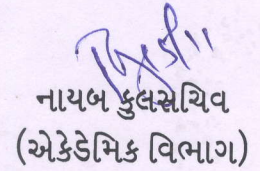 નાયબ કુલસચિવ
(એકેડેમિક વિભાગ)